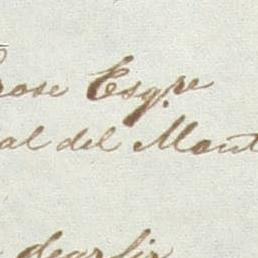 rose Esqre
al del Mont
dear sir